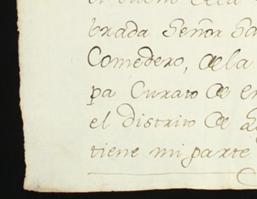 brada Señor Sa
Comedero, de la
pa Curato de en
el distrito de
tiene mi parte